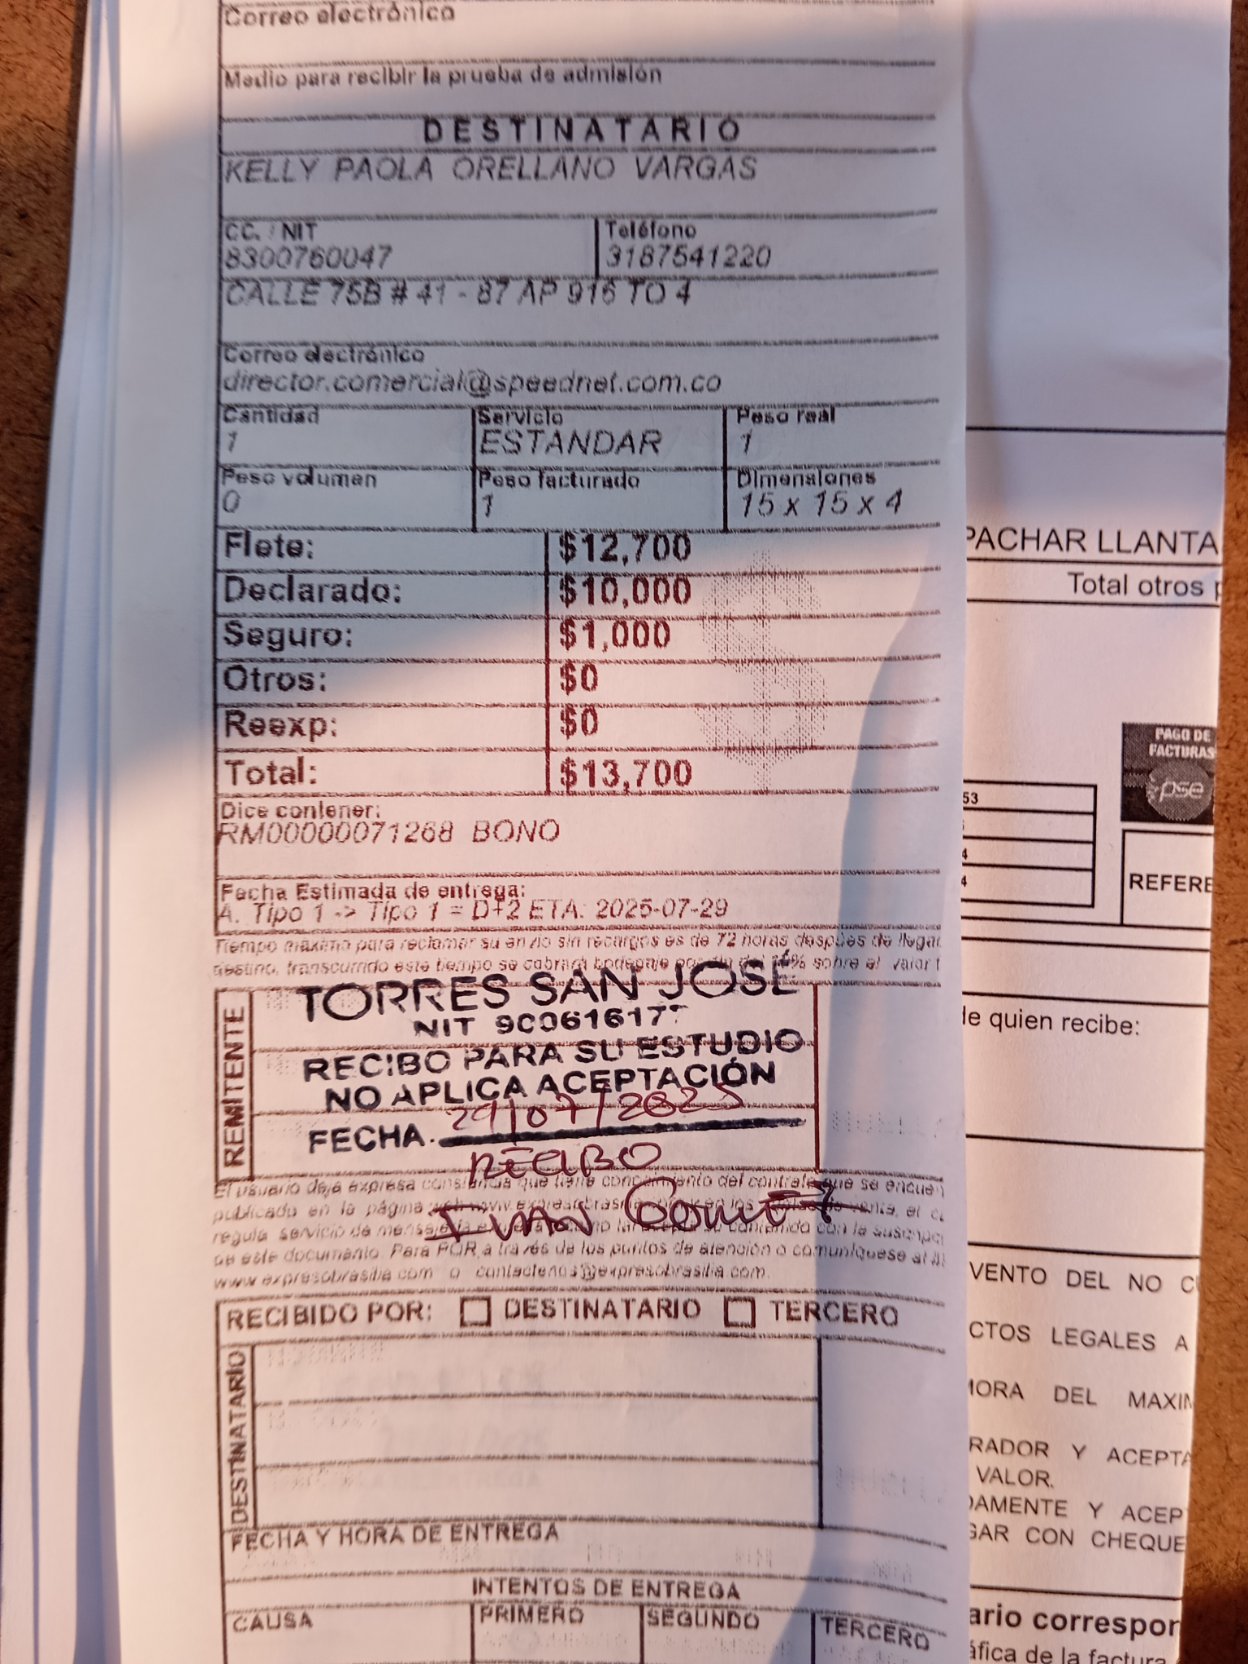 Correo electrónico
Medio para recibir la prueba de admisión
DESTINATARIO
KELLY PAOLA ORELLANO VARGAS
CC. / NIT
8300760047
Teléfono
3187541220
CALLE 75B # 41 - 87 AP 916 TO 4
Correo electrónico
director.comercial@speednet.com.co
Cantidad
1
Servicio
ESTANDAR
Peso real
1
Peso volumen
0
Peso facturado
1
Dimensiones
15 x 15 x 4
Flete: $12,700
Declarado: $10,000
Seguro: $1,000
Otros: $0
Reexp: $0
Total: $13,700
Dice contener:
RM00000071268 BONO
Fecha Estimada de entrega:
A. Tipo 1 -> Tipo 1 = D+2 ETA: 2025-07-29
Tiempo máximo para reclamar su envío sin recargos es de 72 horas después de llegar
destino, transcurrido este tiempo se cobrará bodegaje por sobre el valor
REMITENTE
TORRES SAN JOSÉ
NIT 900616177
RECIBO PARA SU ESTUDIO
NO APLICA ACEPTACIÓN
FECHA. 29/07/2025
RECIBO
IVAN Gomez
El usuario deja expresa constancia que tiene conocimiento del contrato que se encuen
publicado en la página web www.expresobrasilia en los de venta, el
regula servicio de mensajería contenido con la suscripc
de este documento. Para PQR a través de los puntos de atención o comuníquese al
www.expresobrasilia.com o contactenos@expresobrasilia.com.
RECIBIDO POR: DESTINATARIO TERCERO
DESTINATARIO
FECHA Y HORA DE ENTREGA
INTENTOS DE ENTREGA
CAUSA PRIMERO SEGUNDO TERCERO
PACHAR LLANTA
Total otros
PAGO DE
FACTURAS
pse
53
4
4
REFERE
de quien recibe:
VENTO DEL NO C
CTOS LEGALES A
MORA DEL MAXIM
RADOR Y ACEPTA
VALOR.
DAMENTE Y ACEP
GAR CON CHEQUE
ario correspon
áfica de la factura